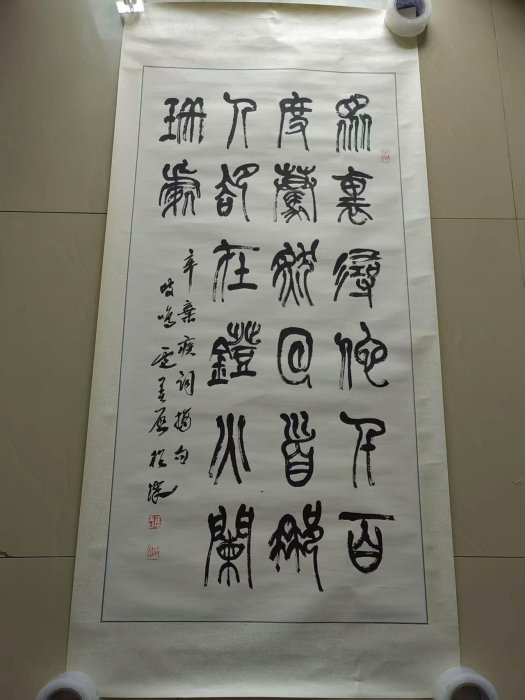 眾裏尋他千百
度驀然回首那
人卻在鐙火闌
珊處
辛棄疾詞摘句